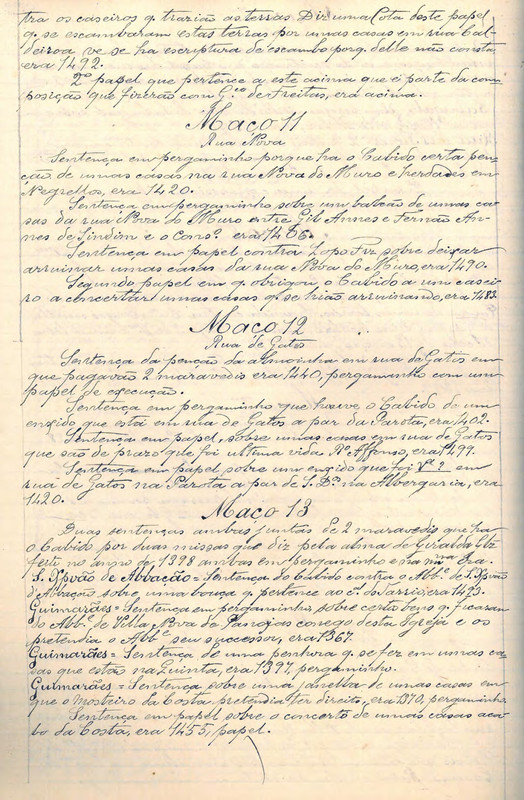 tra os caseiros q. trazião as terras. Diz uma Cota deste papel
q. se escambaram estas terras por umas casas em rua Cal-
deiroa ve se ha escriptura de escambo porq. delle não consta
era 1492.
2º papel que pertence a este acima que é parte da com-
posição que fizerão com Gco de Freitas, era acima.
Maço 11
Rua Nova
Sentença em pergaminho porque ha o Cabido certa pen-
ção de umas casas na rua Nova do Muro e herdades em
Negrellos, era 1420.
Sentença em pergaminho sobre um balcão de umas ca-
sas da rua Nova do Muro entre Gil Annes e Fernão An-
nes de Lindim e o Conso. era 1466.
Sentença em papel contra Lopo Frz sobre deixar
arruinar umas casas da rua Nova do Muro, era 1490.
Segundo papel em q. obrigou o Cabido a um casei-
ro a concertar umas casas q. se hião arruinando, era 1483.
Maço 12
Rua de Gatos
Sentença da penção da Almoinha em rua de Gatos em
que pagavão 2 maravedis era 1440, pergaminho com um
papel de execução.
Sentença em pergaminho que houve o Cabido de um
enxido que está em rua de Gatos a par da Parota, era 1402.
Sentença em papel, sobre umas casas em rua de Gatos
que são de prazo que foi ultima vida Ro Affonso, era 1499.
Sentença em papel sobre um enxido que foi em
rua de Gatos na Parota a par de S. Dos na Albergaria, era
1420.
Maço 13
Duas sentenças ambas juntas de 2 maravedis que ha
o Cabido por duas missas que diz pela alma de Giralda Glz
feitas no anno de 1398 ambas em pergaminho e na mma era.
S. Xpvão de Abbação = Sentença do Cabido contra o Abbe. de S. Xpvão
d'Abbação sobre uma bouça q. pertence ao cl. do Sarrid, era 1423.
Guimarães = Sentença em pergaminho, sobre certos bens q. ficaram
do Abbe. de Villa Nova de Panojas conego desta Igreja e os
pretendia o Abbe seu successor, era 1367.
Guimarães = Sentença de uma penhora q. se fez em umas ca-
sas que estão na Quinta, era 1397, pergaminho.
Guimarães = Sentença sobre uma janella de umas casas em
que o Mosteiro da Costa pretendia ter direito, era 1370, pergaminho
Sentença em papel sobre o concerto de umas casas aca-
bo da Costa, era 1455, papel.